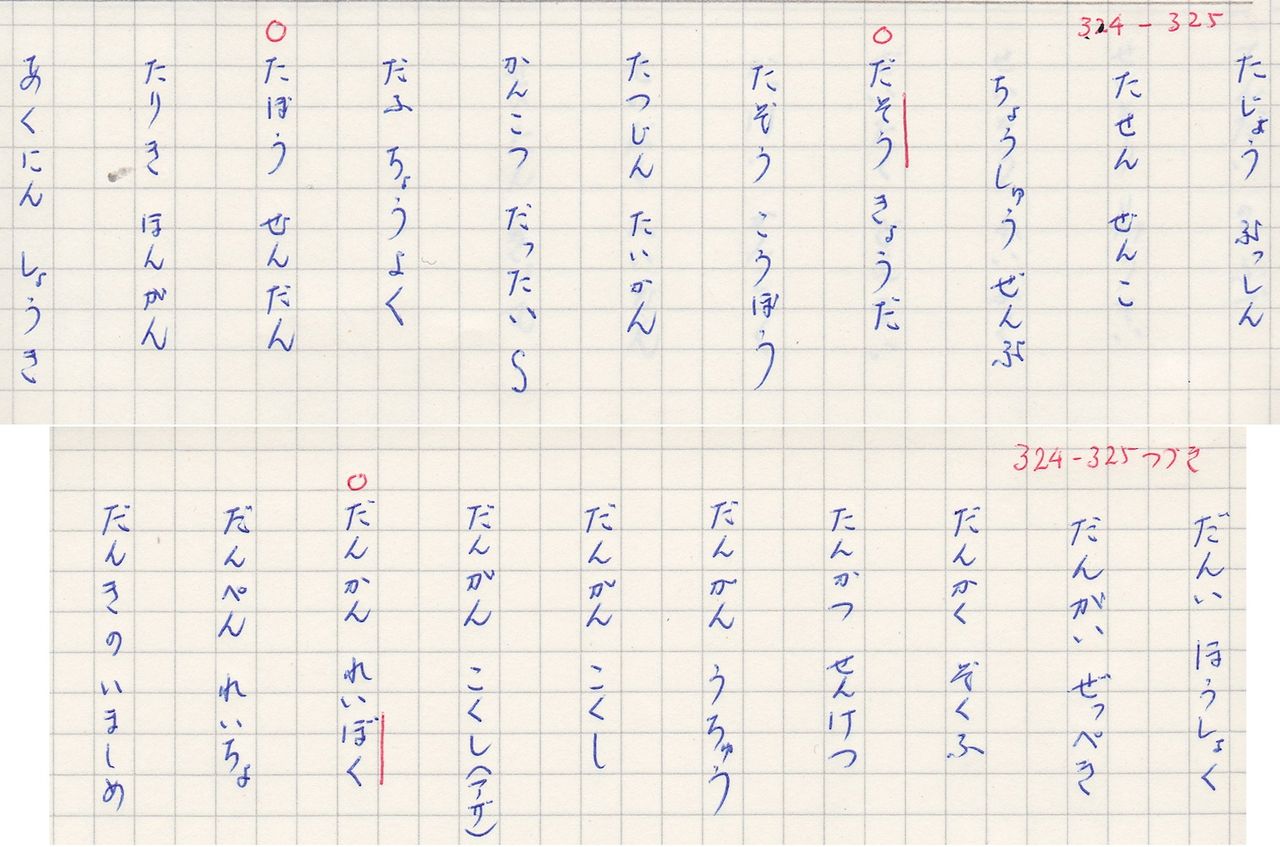 324-325
たじょう ぶっしん
たせん ぜんこ
ちょうしゅう ぜんぶ
だそう きょうだ
たぞう こうぼう
たつじん たいかん
かんこつ だったい
だふ ちょうよく
たぼう せんだん
たりき ほんがん
あくにん しょうき
324-325つづき
だんい ほうしょく
だんがい ぜっぺき
だんかく ぞくふ
たんかつ せんけつ
だんがん うちゅう
だんがん こくし
だんがん こくし(アザ)
だんかん れいぼく
だんぺん れいちょ
だんきの いましめ